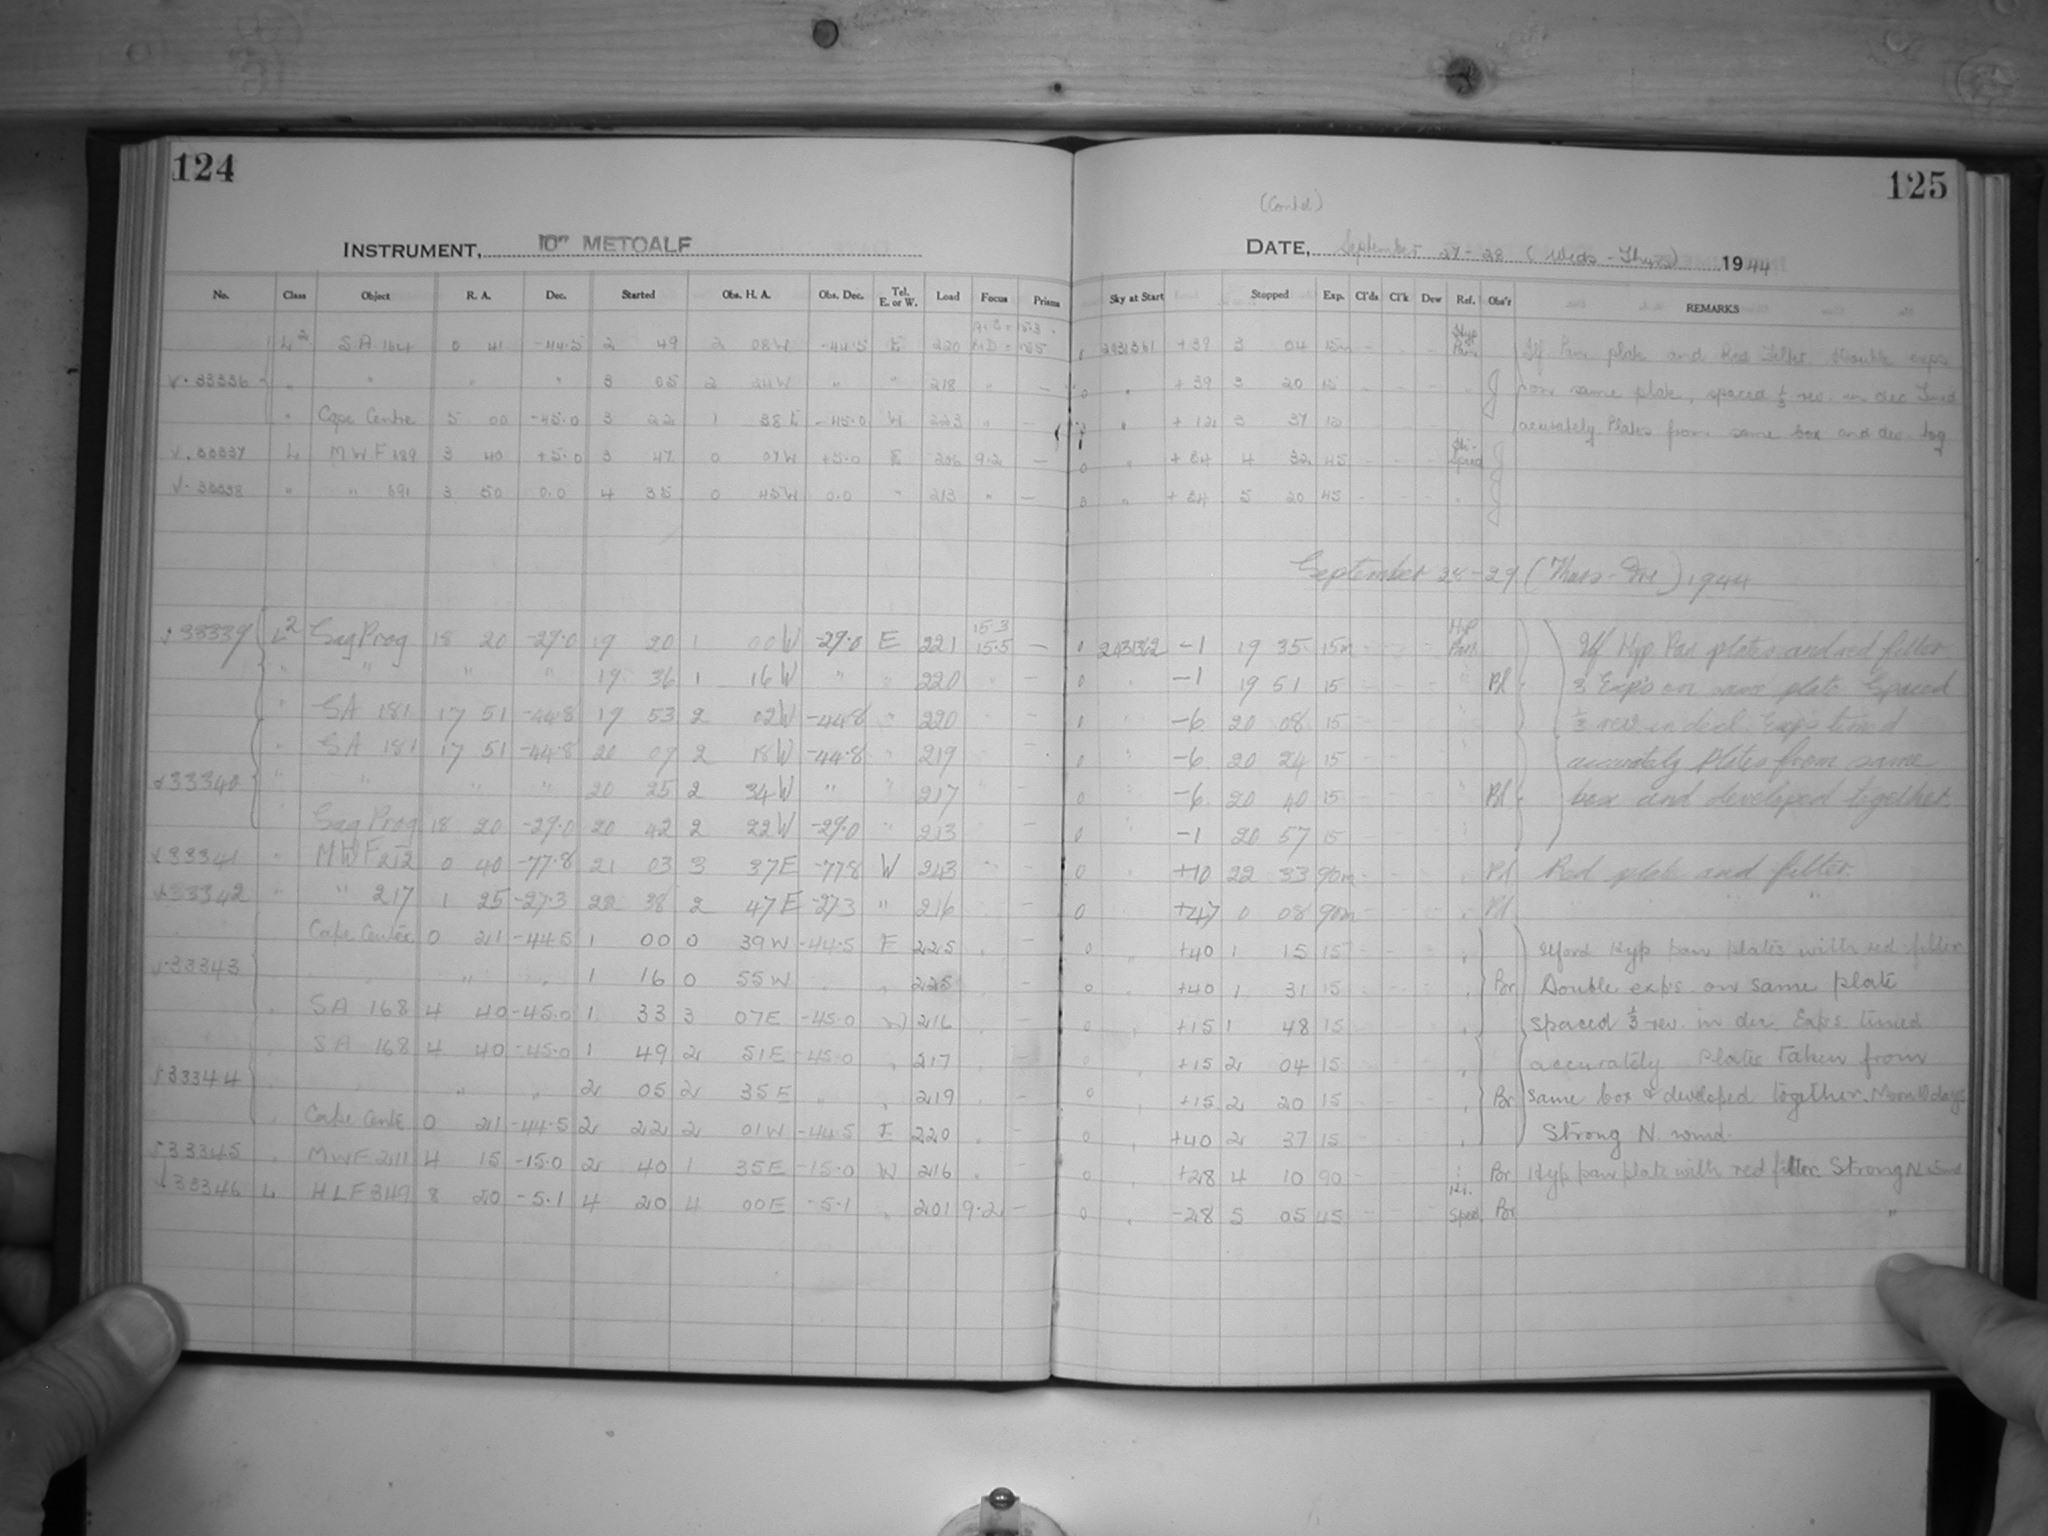 124
125
(Contd)
INSTRUMENT, 10" METCALF
DATE, September 27-28 (Weds - Thurs) 1944
No. Class Object R. A. Dec. Started Obs. H. A. Obs. Dec. Tel. E. or W. Load Focus Prisms Sky at Start Stopped Exp. Cl'ds Cl'k Dew Ref. Obs'r REMARKS
L2 SA 164 0 41 -44.5 2 49 2 08W -44.5 E 220 +39 3 04 15m plate and Red Filter Double exps
33336 " " " " 3 05 2 24W " " 218 " - 0 " +39 3 20 15 - - - " J on same plate, spaced 1/3 rev. in dec Timed
" Cape Centre 5 00 -45.0 3 22 1 38E -45.0 W 223 " - " +12 3 37 15 - - - accurately Plates from same box and dev. tog
33337 L MWF 689 3 40 +5.0 3 47 0 07W +5.0 E 206 9.2 - 0 " +34 4 32 45 - - - J
33338 " " 691 3 50 0.0 4 35 0 45W 0.0 " 213 " - " +34 5 20 45 - - - " J
September 28-29 (Thurs - Fri) 1944
33339 L2 Sag Prog 18 20 -29.0 19 20 1 00W -29.0 E 221 15.3 15.5 - 0 2431362 -1 19 35 15m Pan Ilf Hyp. Pan plates and red filter
" " " " 19 36 1 16W " " 220 " - 0 " -1 19 51 15 " Bl 2 Exp's on same plate Spaced
" SA 181 17 51 -44.8 19 53 2 02W -44.8 " 220 - 0 -6 20 08 15 1/3 rev. in decl. Exps timed
" SA 181 17 51 -44.8 20 07 2 18W -44.8 " 219 - 0 " -6 20 24 15 accurately Plates from same
33340 " " " " 20 25 2 34W " " 217 - 0 " -6 20 40 15 " Bl box and developed together.
Sag Prog 18 20 -29.0 20 42 2 22W -29.0 " 213 - 0 -1 20 57 15
33341 " MWF 212 0 40 -77.8 21 03 3 37E -77.8 W 243 - 0 +10 22 33 90m Bl Red plate and filter.
33342 " " 217 1 25 -27.3 22 38 2 47E -27.3 " 216 - 0 +47 0 08 90m Bl " " "
Cape Center 0 21 -44.5 1 00 0 39W -44.5 E 225 - 0 " +40 1 15 15 Ilford Hyp pan plates with red filter
33343 " " 1 16 0 55W 225 - 0 +40 1 31 15 Br Double exps on same plate
SA 168 4 40 -45.0 1 33 3 07E -45.0 W 216 - 0 +15 1 48 15 spaced 1/3 rev. in dec Exps timed
SA 168 4 40 -45.0 1 49 2 51E -45.0 " 217 - 0 +15 2 04 15 accurately Plates taken from
33344 " " 2 05 2 35E 219 - 0 +15 2 20 15 Br same box & developed together. Moon 10 days
Cape Cente 0 21 -44.5 2 22 2 01W -44.5 E 220 - 0 +40 2 37 15 Strong N. wind.
33345 MWF 211 4 15 -15.0 2 40 1 35E -15.0 W 216 - 0 +28 4 10 90 Br Hyp pan plate with red filter. Strong N wind
33346 L HLF 349 8 20 -5.1 4 20 4 00E -5.1 " 201 9.2 - 0 -28 5 05 45 Hi. Speed Br "